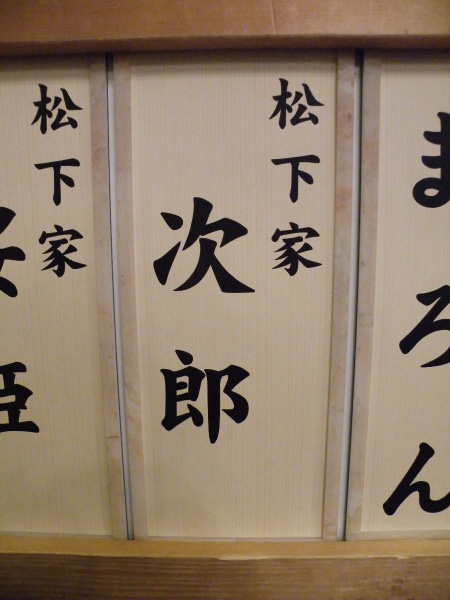 まろん
松下家
次郎
松下家